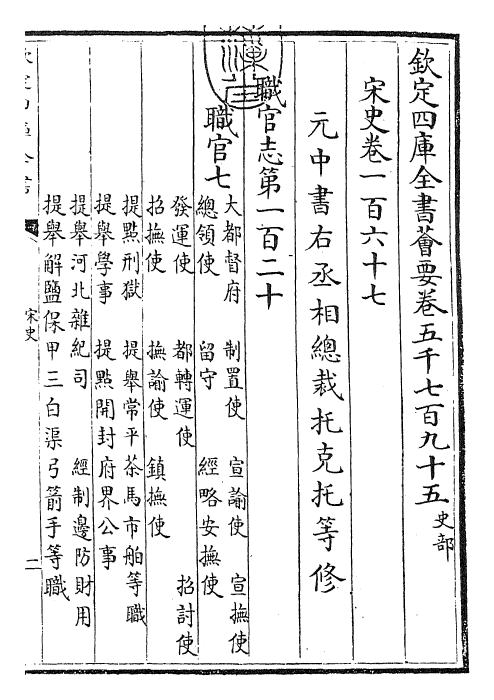 欽定四庫全書薈要卷五千七百九十五 史部
宋史卷一百六十七
元中書右丞相總裁托克托等修
職官志第一百二十
職官七
大都督府 制置使 宣諭使 宣撫使
總領使 留守 經略安撫使
發運使 都轉運使 招討使
招撫使 撫諭使 鎮撫使
提點刑獄 提舉常平茶馬市舶等職
提舉學事 提點開封府界公事
提舉河北雜紀司 經制邊防財用
提舉解鹽保甲三白渠弓箭手等職
宋史